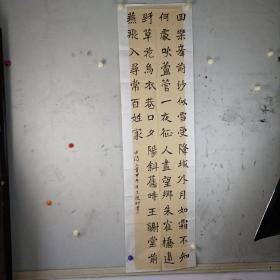 回樂峯前沙似雪受降城外月如霜不知
何處吹蘆管一夜征人盡望鄉朱雀橋邊
野草花烏衣巷口夕陽斜舊時王謝堂前
燕飛入尋常百姓家